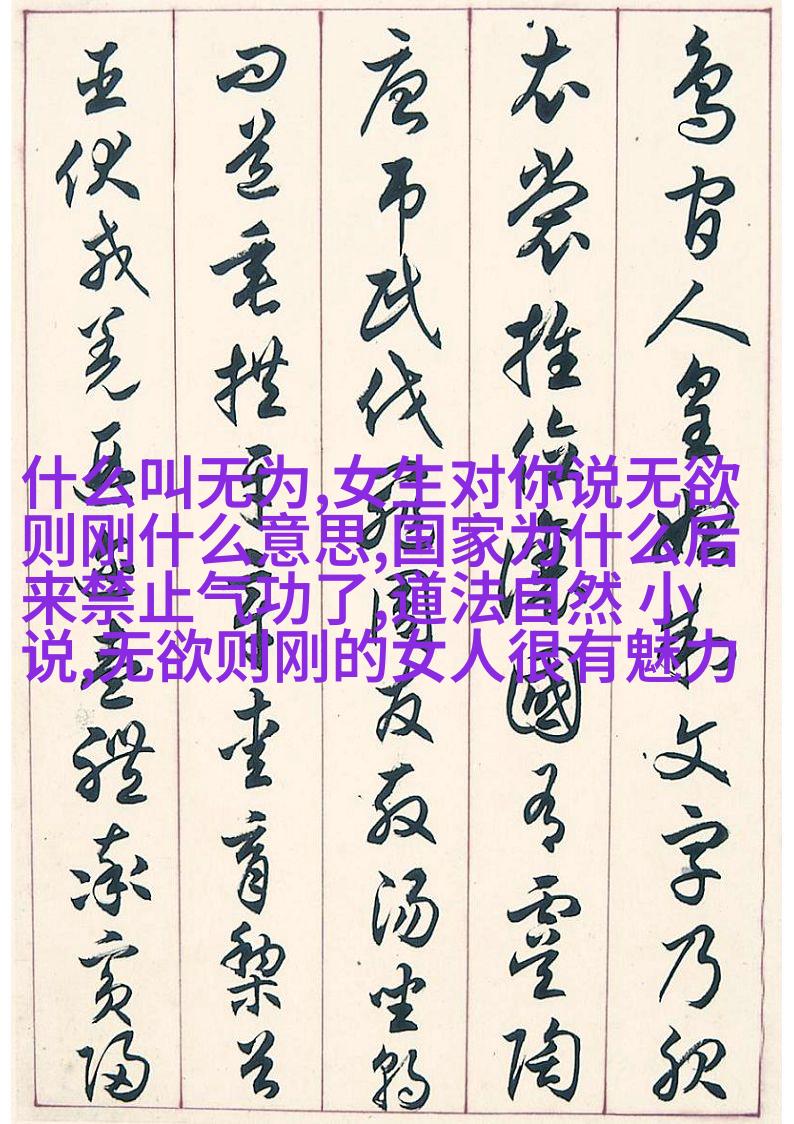 鳥官人皇始制文字乃服
衣裳推位讓國有虞陶
唐弔民伐罪周發殷湯坐朝
問道垂拱平章愛育黎首
臣伏戎羌遐邇壹體率賓歸
什么叫无为,女生对你说无欲
则刚什么意思,国家为什么后
来禁止气功了,道法自然 小
说,无欲则刚的女人很有魅力